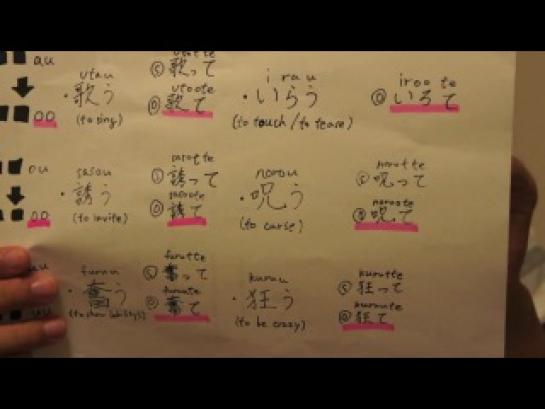 au
oo
utau
・歌う
(to sing)
utatte
Ⓢ歌って
utoote
Ⓞ歌て
irau
・いらう
(to touch/to tease)
iroote
Ⓞいろて
ou
oo
sasou
・誘う
(to invite)
sasotte
Ⓢ誘って
sasoote
Ⓞ誘て
norou
・呪う
(to curse)
norotte
Ⓢ呪って
noroote
Ⓞ呪て
uu
uu
furuu
・奮う
(to show ability)
furutte
Ⓢ奮って
furuute
Ⓞ奮て
kuruu
・狂う
(to be crazy)
kurutte
Ⓢ狂って
kuruute
Ⓞ狂て